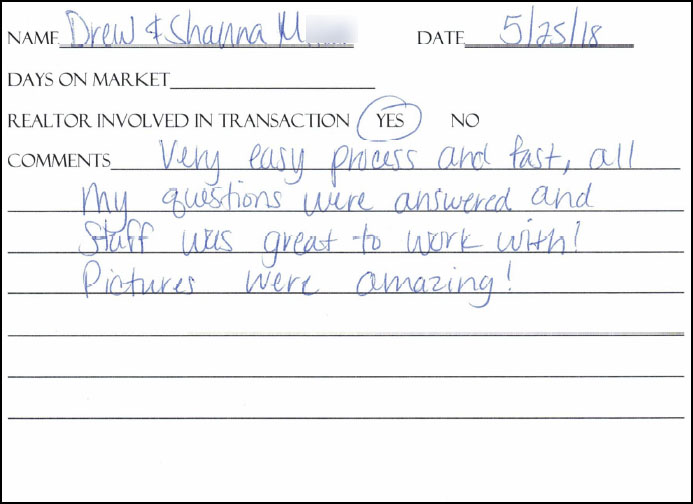 NAME Drew & Shanna M
DATE 5/25/18
DAYS ON MARKET
REALTOR INVOLVED IN TRANSACTION YES NO
COMMENTS Very easy process and fast, all
my questions were answered and
Staff was great to work with!
Pictures were amazing!